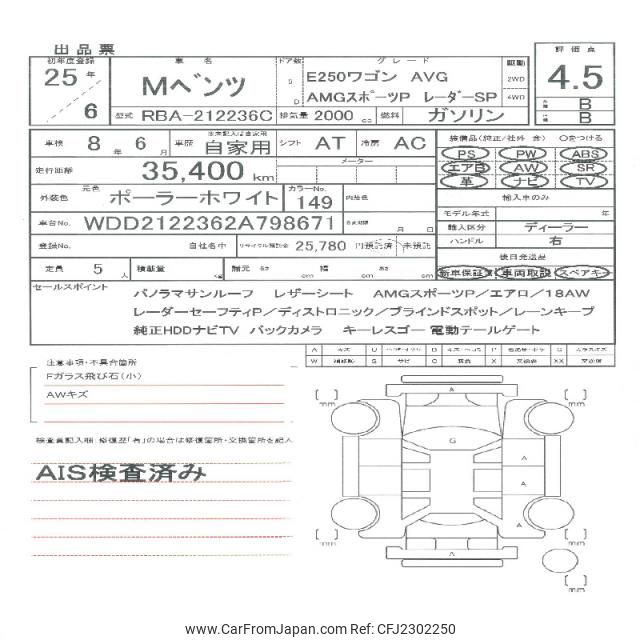 出品票
初年度登録 車名 ドア数 グレード 駆動 評価点
25年 Mベンツ 5 E250ワゴン AVG 2WD 4.5
6 D AMGスポーツP レーダーSP 4WD B
型式 RBA-212236C 排気量 2000 cc 燃料 ガソリン B
車検 8年 6月 車歴 自家用 シフト AT 冷房 AC
装備品(純正/社外 含) ○をつける
PS PW ABS
走行距離 35,400 km メーター
エアB AW SR
革 ナビ TV
外装色 元色 ポーラーホワイト カラーNo. 149 内装色
輸入車のみ
モデル年式 年
車台No. WDD2122362A798671 月 日
輸入区分 ディーラー
登録No. 自社名中 リサイクル預託金 25,780 円預託済 未預託
ハンドル 右
後日発送品
定員 5人 積載量 kg 諸元 長さ cm 幅 cm 高さ cm
新車保証書 車両取説 スペアキー
セールスポイント パノラマサンルーフ レザーシート AMGスポーツP/エアロ/18AW
レーダーセーフティP/ディストロニック/ブラインドスポット/レーンキープ
純正HDDナビTV バックカメラ キーレスゴー 電動テールゲート
注意事項・不具合箇所
Fガラス飛び石(小)
AWキズ
検査員記入欄 修復歴「有」の場合は修復箇所・交換箇所を記入
AIS検査済み
A
G
A
A
A
A
mm
mm
mm
mm
© www.CarFromJapan.com Ref: CFJ2302250